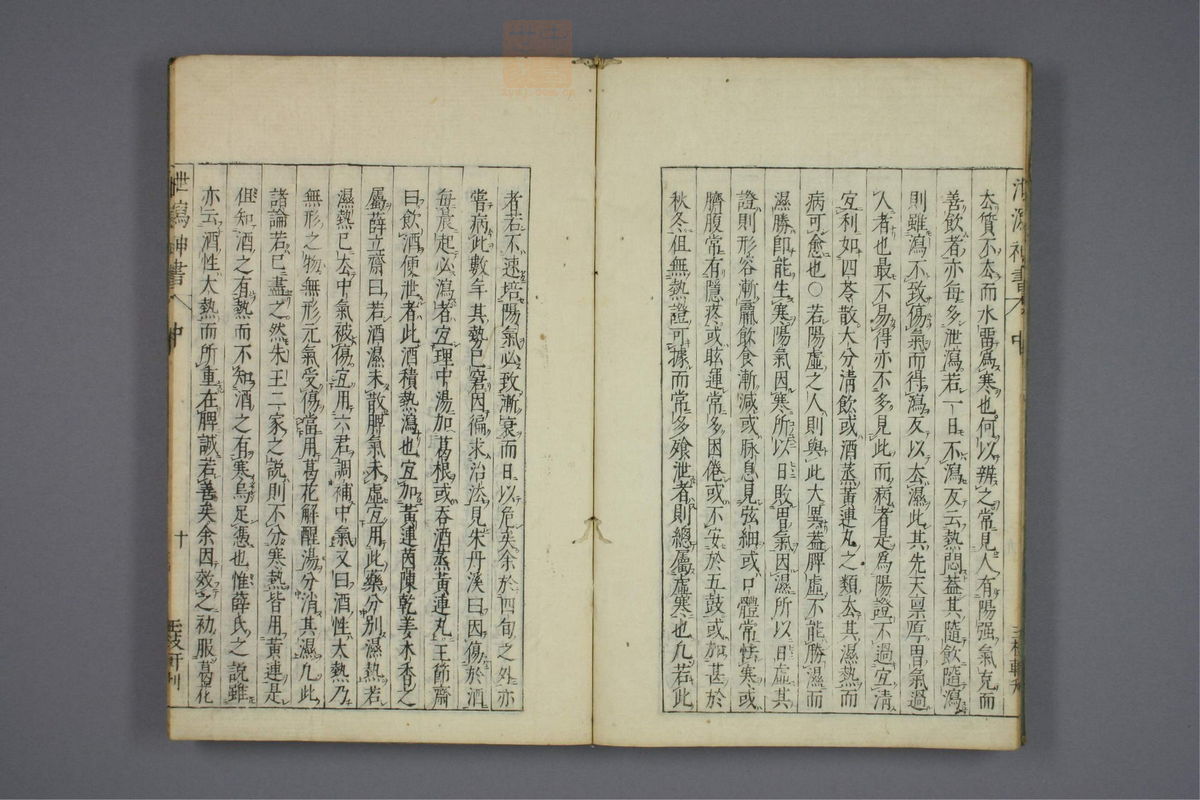 去質不去而水留爲寒也何以辨之常見人有陽强氣充而
善飲者亦每多泄瀉若一日不瀉反云熱悶蓋其隨飲隨瀉
則雖瀉不致傷氣而得瀉反以去濕此其先天禀厚胃氣過
人者也最不易得亦不多見此而病者是爲陽證不過宜清
宜利如四苓散大分清飲或酒蒸黃連丸之類去其濕熱而
病可愈也○若陽虛之人則與此大異蓋脾虛不能勝濕而
濕勝卽能生寒陽氣因寒所以日敗胃氣因濕所以日虛其
證則形容漸羸飲食漸減或脉息見弦細或口體常怯寒或
臍腹常有隱疼或眩運常多困倦或不安於五鼓或加甚於
秋冬但無熱證可據而常多飧泄者則總屬虛寒也凡若此
者若不速培陽氣必致漸衰而日以危矣余於四旬之外亦
嘗病此數年其勢已窘因徧求治法見朱丹溪曰因傷於酒
每晨起必瀉者宜理中湯加葛根或吞酒蒸黃連丸王節齋
曰飲酒便泄者此酒積熱瀉也宜加黃連茵陳乾姜木香之
屬薛立齋曰若酒濕未散脾氣未虛宜用此藥分別濕熱若
濕熱已去中氣被傷宜用六君調補中氣又曰酒性大熱乃
無形之物無形元氣受傷當用葛花解醒湯分消其濕凡此
諸論若已盡之然朱王二家之說則不分寒熱皆用黃連是
但知酒之有熱而不知酒之有寒烏足憑也惟薛氏之說雖
亦云酒性大熱而所重在脾誠若善矣余因效之初服葛花
泄瀉神書 中
十